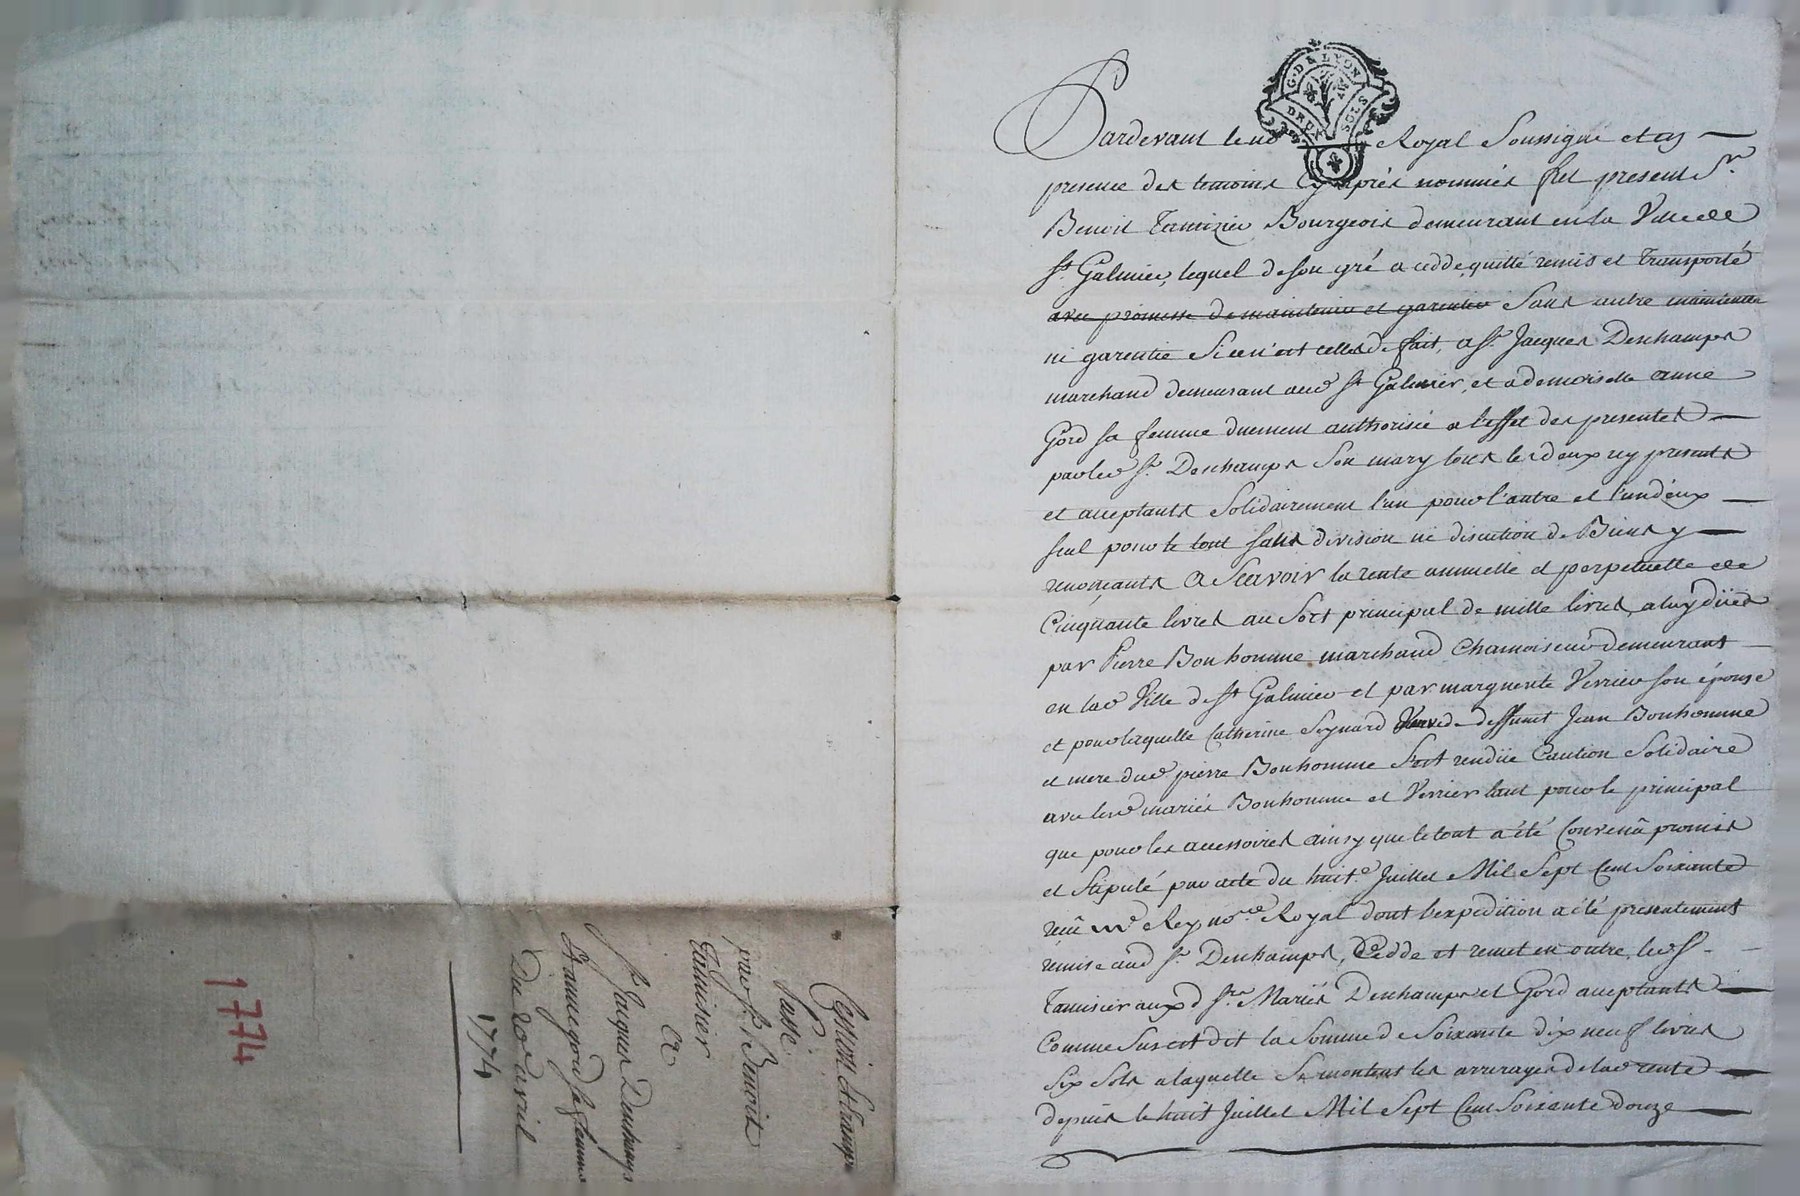 G. D. & LYON
DEUX SOLS
Pardevant le no Royal Soussigné et en
presence des temoins cy après nommés fut present Sr
Benoit Tamizier Bourgeois demeurant en la Ville de
St Galmier, lequel de son gré a cedde, quitté remis et transporté
avec promesse de maintenir et garentir sans autre maintenue
ni garentie si ce n'est celles de fait, a Sr Jacques Deschamps
marchand demeurant aud St Galmier, et a demoiselle anne
Gord sa femme duement authorisée a l'effet des presentes
par led Sr Deschamps son mary tous les deux icy presents
et acceptants solidairement l'un pour l'autre et l'un d'eux
seul pour le tout sans division ni discution de Biens y
renonçants a scavoir la rente annuelle et perpetuelle de
Cinquante livres au sort principal de mille livres, a luy düës
par Pierre Bonhomme marchand Chamoiseur demeurant
en lad Ville de St Galmier et par marguerite Verrier son épouse
et pour laquelle Catherine Seynard Veuve de deffunct Jean Bonhomme
et mere dud pierre Bonhomme s'est rendüe Caution Solidaire
avec lesd mariés Bonhomme et Verrier tant pour le principal
que pour les accessoires ainsy que le tout a été Convenû promis
et stipulé par acte du huite Juillet Mil Sept Cent Soixante
reçû Me Rey nore Royal dont l'expedition a été presentement
remise aud Sr Deschamps, Cedde et remet en outre led Sr
Tamisier auxd Srs Mariés Deschamps et Gord acceptants
Comme Sus est dit la Somme de Soixante dix neuf livres
Six Sols a laquelle se montent les arrerages de lad rente
depuis le huit Juillet Mil Sept Cent Soixante douze
Cession et transpt
Passé
par Sr Benoit
Tamisier
A
Sr Jacques Deschamps
et anne gord sa femme
Du 20e avril
1774
1774